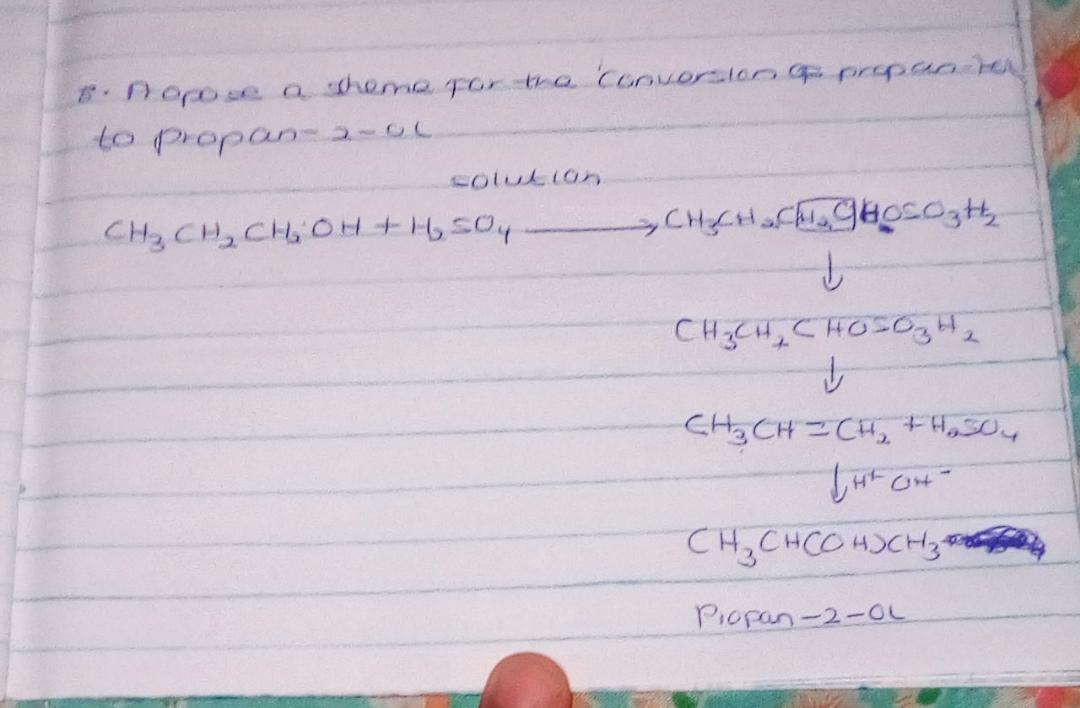 8. Propose a sheme for the conversion of propan-1-ol
to propan-2-ol
solution
CH₃CH₂CH₂OH + H₂SO₄ → CH₃CH₂CH₂CHOSO₃H₂
↓
CH₃CH₂CHOSO₃H₂
↓
CH₃CH=CH₂ + H₂SO₄
↓ H⁺ OH⁻
CH₃CH(OH)CH₃
Propan-2-OL